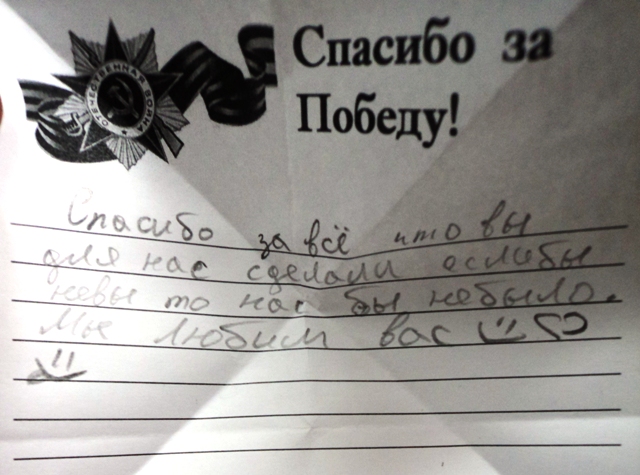 Спасибо за
Победу!
ОТЕЧЕСТВЕННАЯ ВОЙНА
Спасибо за всё что вы
для нас сделали еслибы
невы то нас бы небыло.
Мы любим вас